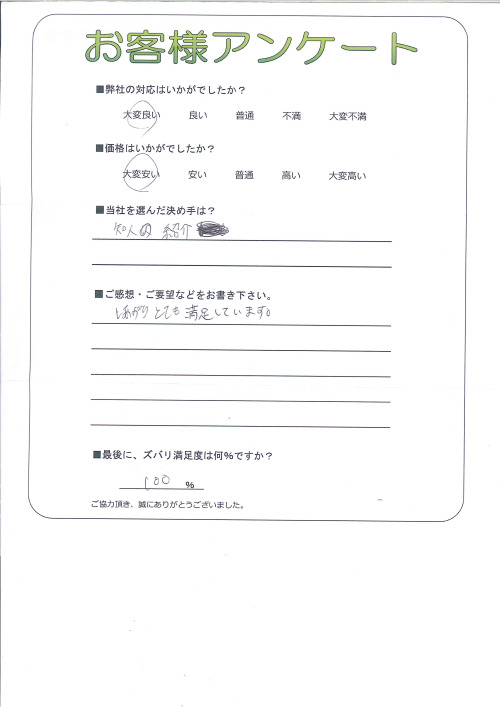 お客様アンケート
■弊社の対応はいかがでしたか？
大変良い 良い 普通 不満 大変不満
■価格はいかがでしたか？
大変安い 安い 普通 高い 大変高い
■当社を選んだ決め手は？
知人の 紹介
■ご感想・ご要望などをお書き下さい。
とても満足しています。
■最後に、ズバリ満足度は何％ですか？
100 ％
ご協力頂き、誠にありがとうございました。